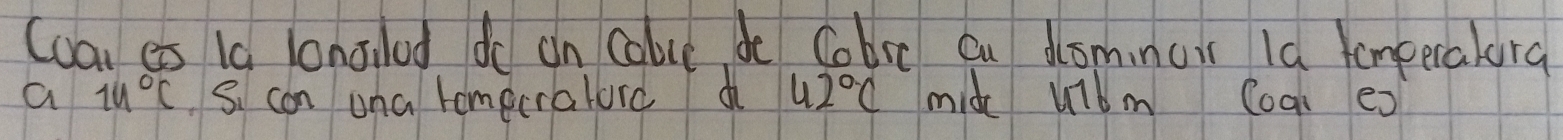 Cual es la longitud de un Cable de Cobre al disminuir la temperatura
a 14°C. Si con una temperatura de 42°C mide 416m Cual es